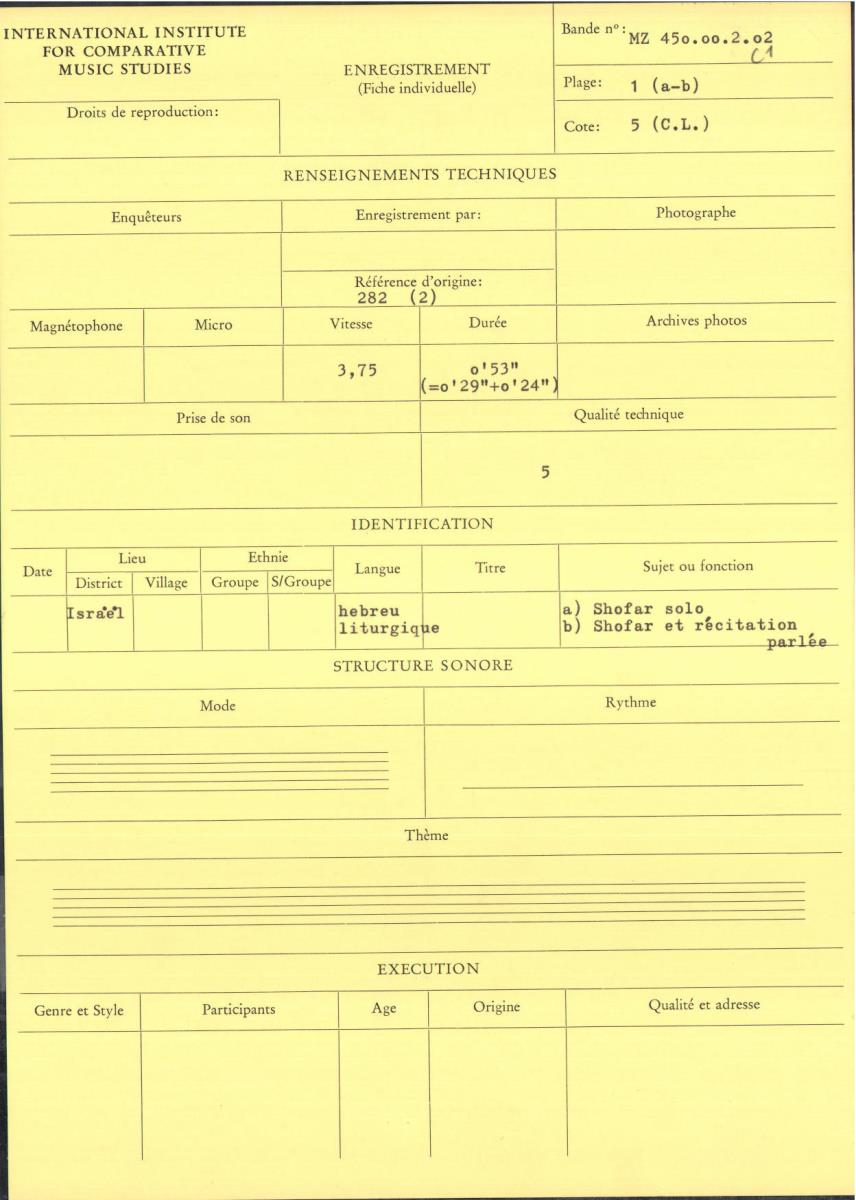 INTERNATIONAL INSTITUTE
FOR COMPARATIVE
MUSIC STUDIES
Droits de reproduction:
ENREGISTREMENT
(Fiche individuelle)
Bande nº: MZ 45o.oo.2.o2
C1
Plage: 1 (a-b)
Cote: 5 (C.L.)
RENSEIGNEMENTS TECHNIQUES
Enquêteurs
Enregistrement par:
Photographe
Référence d'origine:
282 (2)
Magnétophone
Micro
Vitesse
Durée
Archives photos
3,75
o'53"
(=o'29"+o'24")
Prise de son
Qualité technique
5
IDENTIFICATION
Date
Lieu
District
Village
Ethnie
Groupe
S/Groupe
Langue
Titre
Sujet ou fonction
Israël
hebreu
liturgique
a) Shofar solo
b) Shofar et récitation
parlée
STRUCTURE SONORE
Mode
Rythme
Thème
EXECUTION
Genre et Style
Participants
Age
Origine
Qualité et adresse